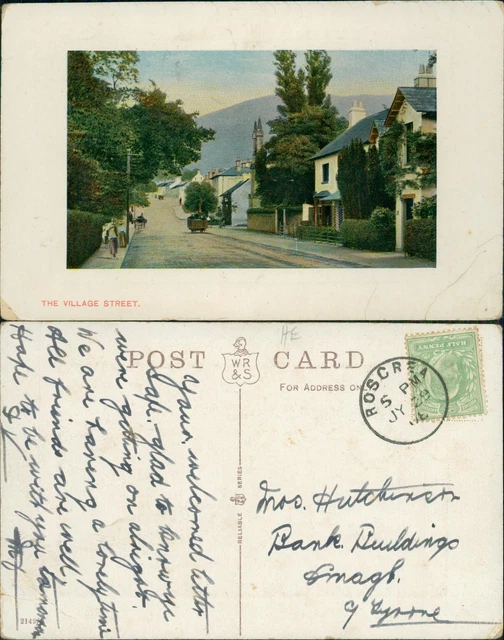 THE VILLAGE STREET.
POST CARD
WR
&S
FOR ADDRESS ON
HE
HALF PENNY
ROSCREA
5 PM
JY 28
RELIABLE SERIES
Your welcomed letter
safe. glad to know ye
were getting on alright.
We are having a lovely time
All friends are well.
Hope to be with you
Mrs. Hutchinson
Bank. Buildings
Omagh.
Tyrone